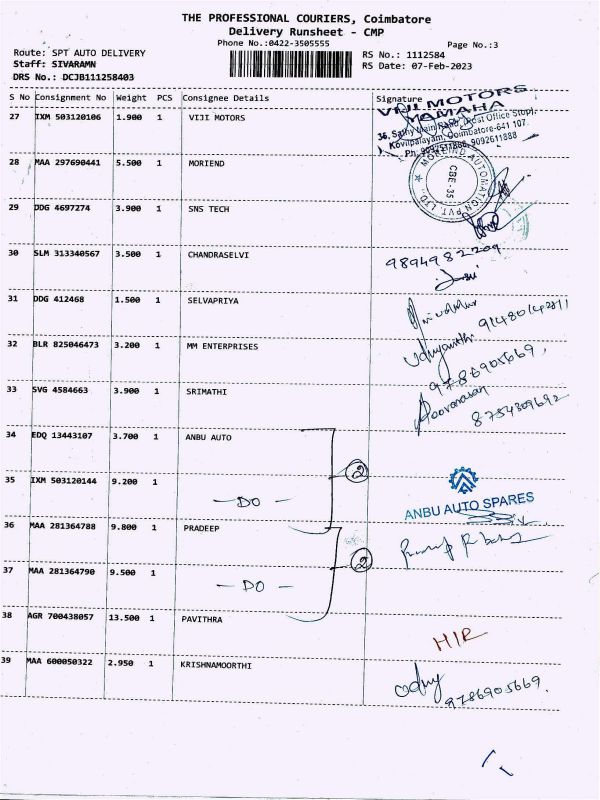 THE PROFESSIONAL COURIERS, Coimbatore
Delivery Runsheet - CMP
Phone No.:0422-3505555
Page No.:3
Route: SPT AUTO DELIVERY
Staff: SIVARAMN
DRS No.: DCJB111258403
RS No.: 1112584
RS Date: 07-Feb-2023
S No Consignment No Weight PCS Consignee Details Signature
27 IXM 503120106 1.900 1 VIJI MOTORS
VIJI MOTORS
YAMAHA
36, Sathy Main Road, (Post Office Stop),
Kovilpalayam, Coimbatore-641 107.
28 MAA 297690441 5.500 1 MORIEND
AUTOMATION PVT. LTD.
CBE-35
29 DDG 4697274 3.900 1 SNS TECH
30 SLM 313340567 3.500 1 CHANDRASELVI
9894982209
31 DDG 412468 1.500 1 SELVAPRIYA
32 BLR 825046473 3.200 1 MM ENTERPRISES
9786905669,
33 SVG 4584663 3.900 1 SRIMATHI
8754309692
34 EDQ 13443107 3.700 1 ANBU AUTO
2
35 IXM 503120144 9.200 1
- DO -
ANBU AUTO SPARES
36 MAA 281364788 9.800 1 PRADEEP
2
37 MAA 281364790 9.500 1
- DO -
38 AGR 700438057 13.500 1 PAVITHRA
HIR
39 MAA 600050322 2.950 1 KRISHNAMOORTHI
9786905669.